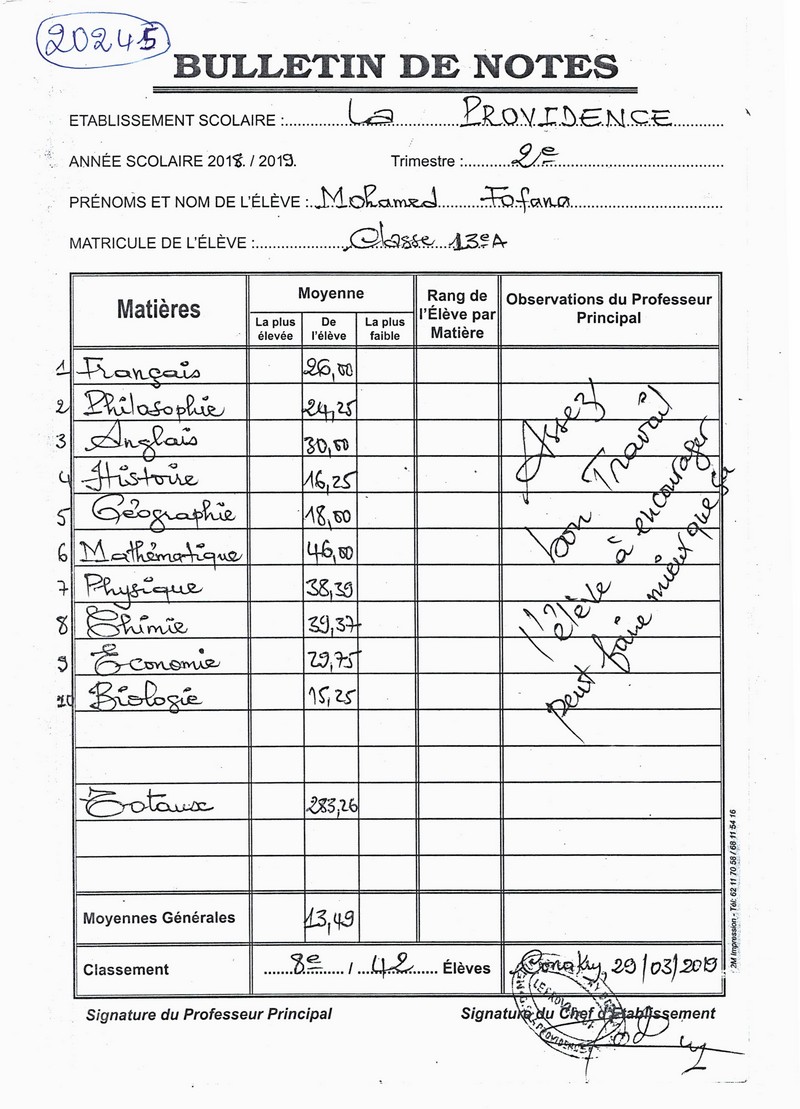 20245
BULLETIN DE NOTES
ETABLISSEMENT SCOLAIRE : La PROVIDENCE
ANNÉE SCOLAIRE 2018 / 2019. Trimestre : 2e
PRÉNOMS ET NOM DE L'ÉLÈVE : Mohamed Fofana
MATRICULE DE L'ÉLÈVE : Classe 13eA
Matières
Moyenne
La plus élevée
De l'élève
La plus faible
Rang de l'Élève par Matière
Observations du Professeur Principal
1 Français 26,00
2 Philosophie 24,25
3 Anglais 30,00
4 Histoire 16,25
5 Géographie 18,00
6 Mathématique 46,00
7 Physique 38,39
8 Chimie 39,37
9 Economie 29,75
10 Biologie 15,25
Assez
bon Travail
l'élève à encourager
peut faire mieux que ça
Totaux 283,26
Moyennes Générales 13,49
Classement 8e / 42 Élèves
Conakry, 29/03/2019
Signature du Professeur Principal
Signature du Chef d'Etablissement
2M Impression - Tél: 62 11 70 58 / 68 11 54 16